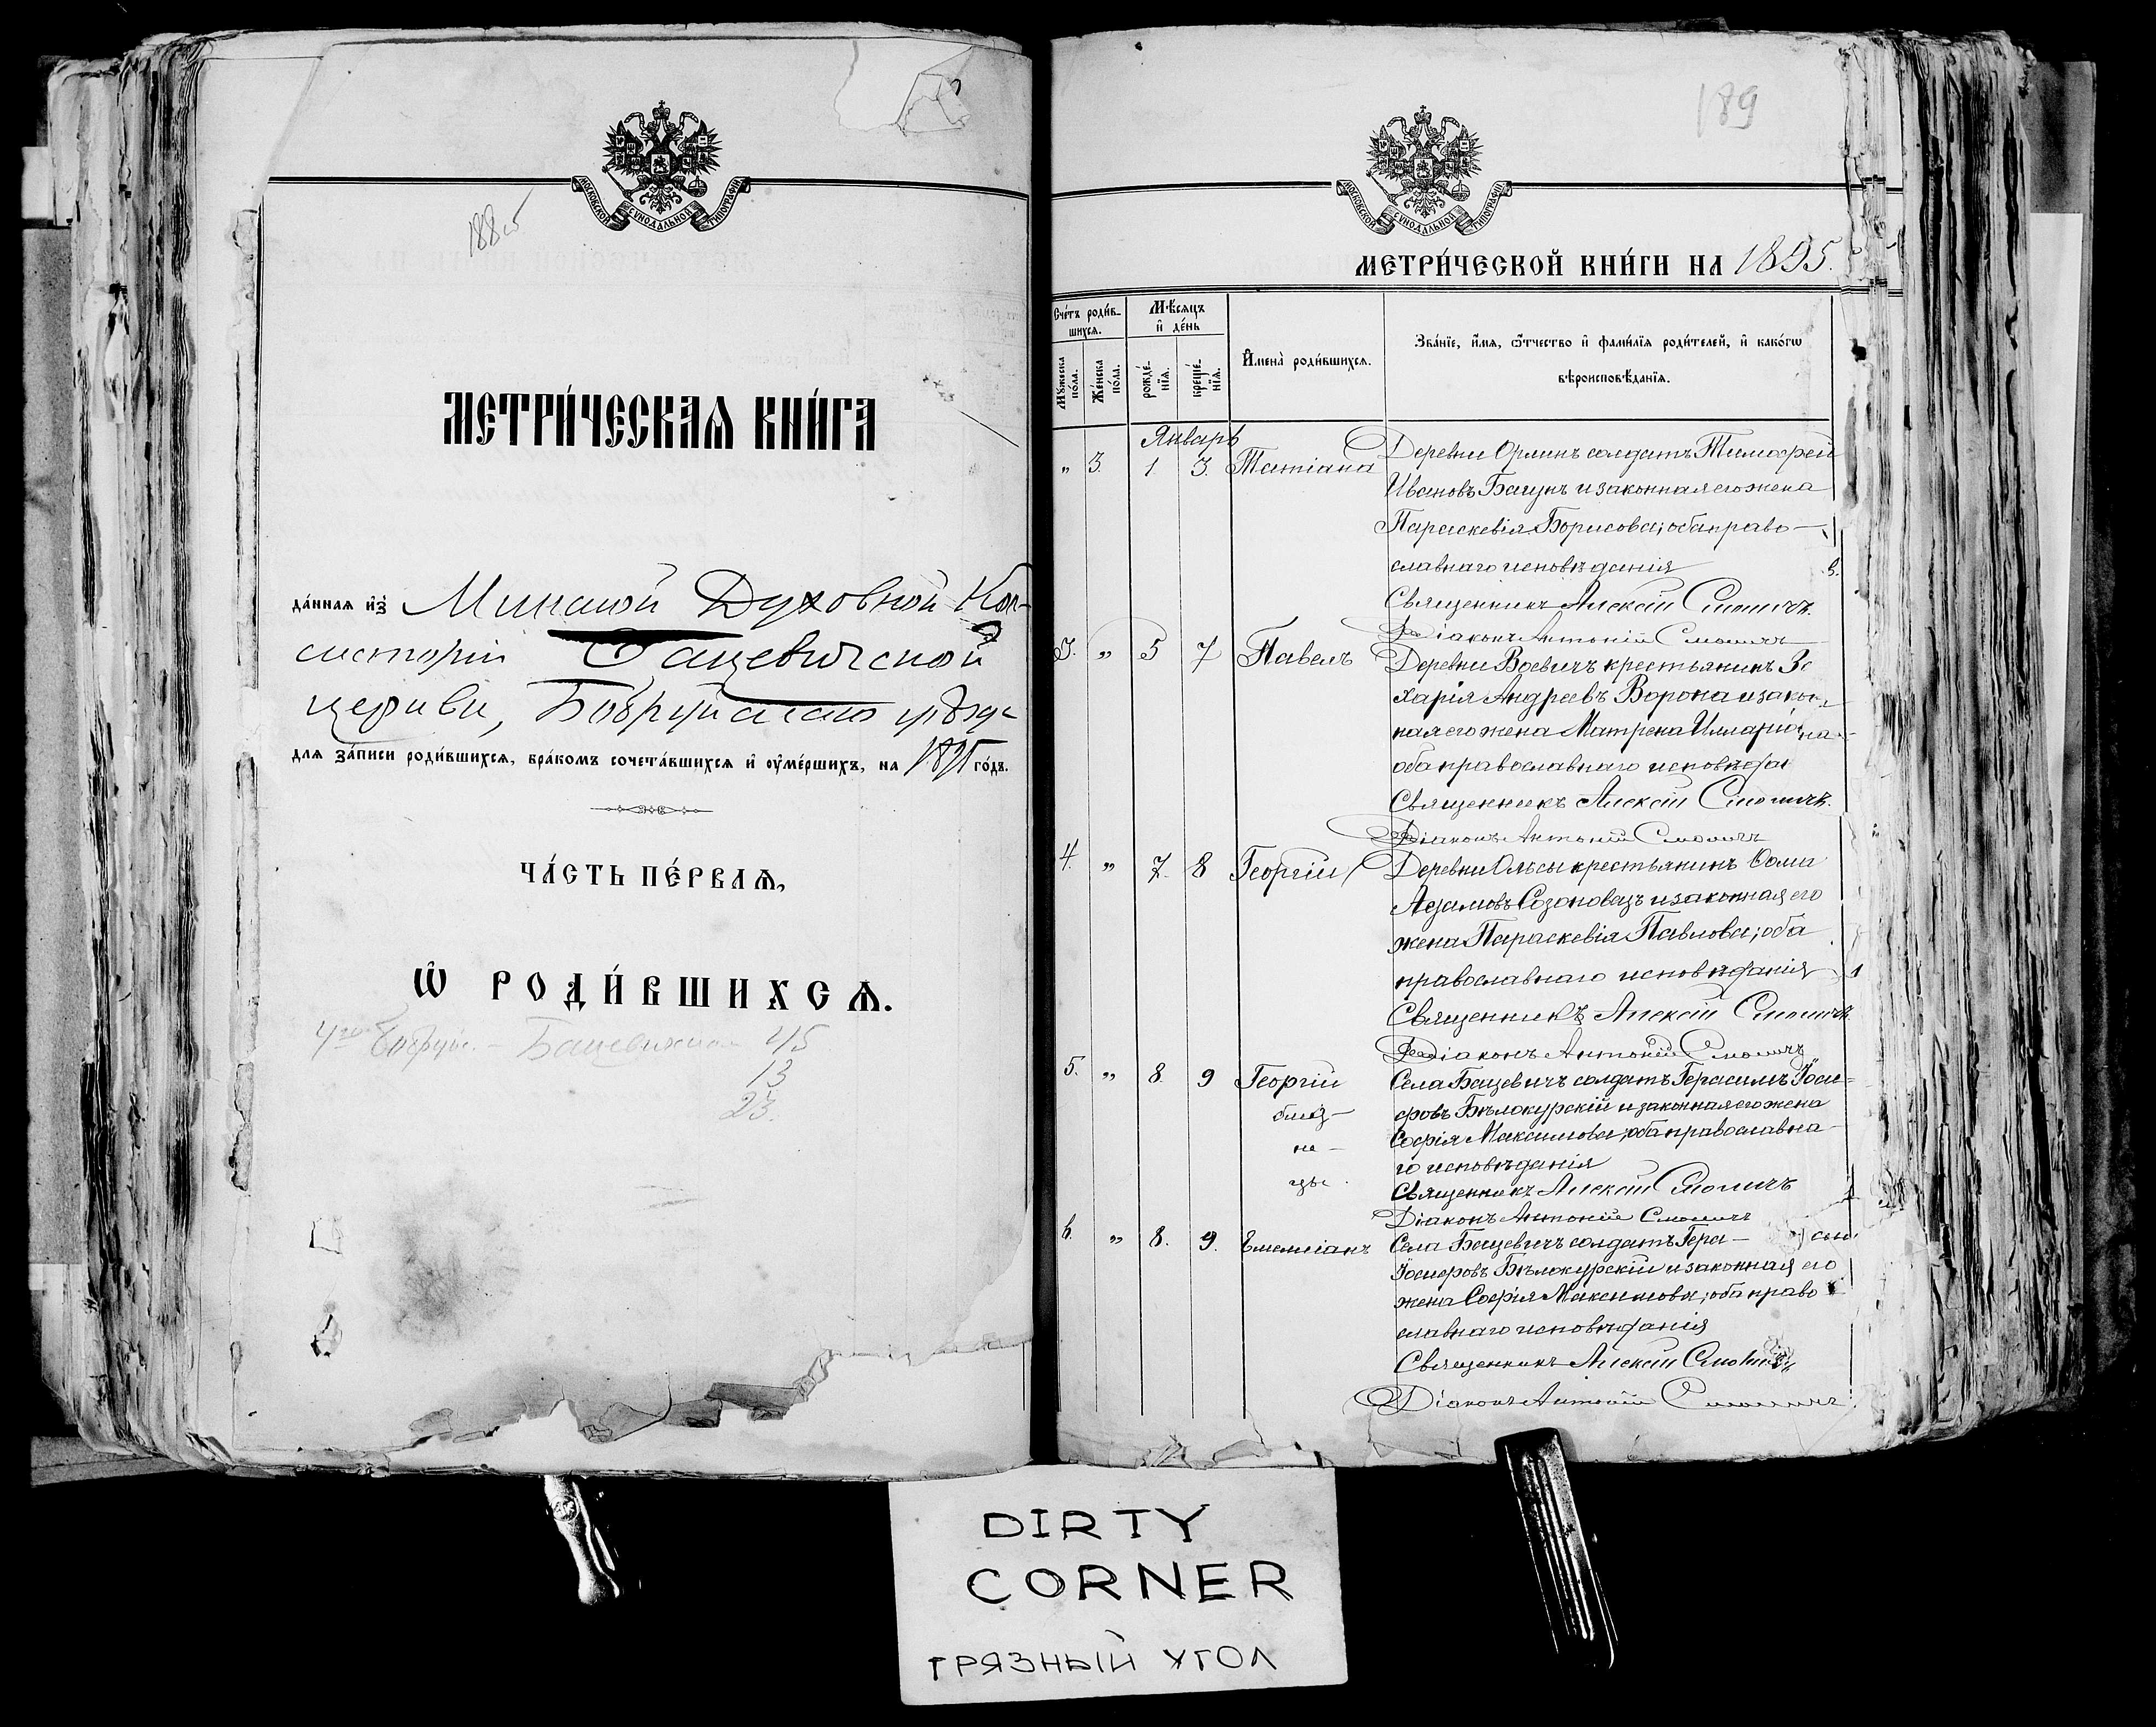 МОСКОВСКОЙ СѴНОДАЛЬНОЙ ТИПОГРАФІИ
1885
МЕТРИ́ЧЕСКАЯ КНИ́ГА
да́нная и҆з̾ Минской Духовной Кон-
систоріи Бацевичской
церкви, Бобруйскаго уѣзда
для за́писи роди́вшихся, бра́комъ сочета́вшихся и҆ ᲂу҆ме́ршихъ, на 1895 го́дъ.
ЧА́СТЬ ПЕ́РВАЯ,
Ѽ РОДИ́ВШИХСЯ.
Бацевичская 45
13
23.
189
МОСКОВСКОЙ СѴНОДАЛЬНОЙ ТИПОГРАФІИ
МЕТРИ́ЧЕСКОЙ КНИ́ГИ НА 1895.
Сче́тъ роди́в-
шихся.
Мѣ́сяцъ
и҆ де́нь
Мꙋ́жеска по́ла.
Же́нска по́ла.
рожде́-нїя.
креще́-нїя.
И҆мена̀ роди́вшихся.
Зва́нїе, и҆́мя, ѻ҆́тчество и҆ фами́лїя роди́телей, и҆ како́гѡ
вѣроисповѣ́данїя.
Январь
„ 3. 1 3. Татіана Деревни Орлинъ солдатъ Тимофей
Ивановъ Бацунъ и законная его жена
Параскевія Борисова; оба право-
славнаго исповѣданія
Священникъ Алексій Смоличъ.
Діаконъ Антоній Смоличъ
3. „ 5 7 Павелъ Деревни Воевичъ крестьянинъ За
харія Андреевъ Ворона и закон-
ная его жена Матрена Илларіо на
оба православнаго исповѣда
Священникъ Алексій Смоличъ.
Діаконъ Антоній Смоличъ
4. „ 7. 8 Георгій Деревни Ольсы крестьянинъ Ѳома
Адамовъ Созоновецъ и законная его
жена Параскевія Павлова; оба
православнаго исповѣданія
Священникъ Алексій Смоличъ.
Діаконъ Антоній Смоличъ
5. „ 8. 9 Георгій Села Бацевичъ солдатъ Герасимъ Іоси-
близ- фовъ Бѣлокурскій и законная его жена
не- Софія Максимова; оба православна-
цы. го исповѣданія
Священникъ Алексій Смоличъ
Діаконъ Антоній Смоличъ
6. „ 8. 9. Емеліанъ Села Бацевичъ солдатъ Гера- симъ
Іосифовъ Бѣлокурскій и законная его
жена Софія Максимова; оба право
славнаго исповѣданія
Священникъ Алексій Смоличъ
Діаконъ Антоній Смоличъ.
DIRTY
CORNER
ГРЯЗНЫЙ УГОЛ